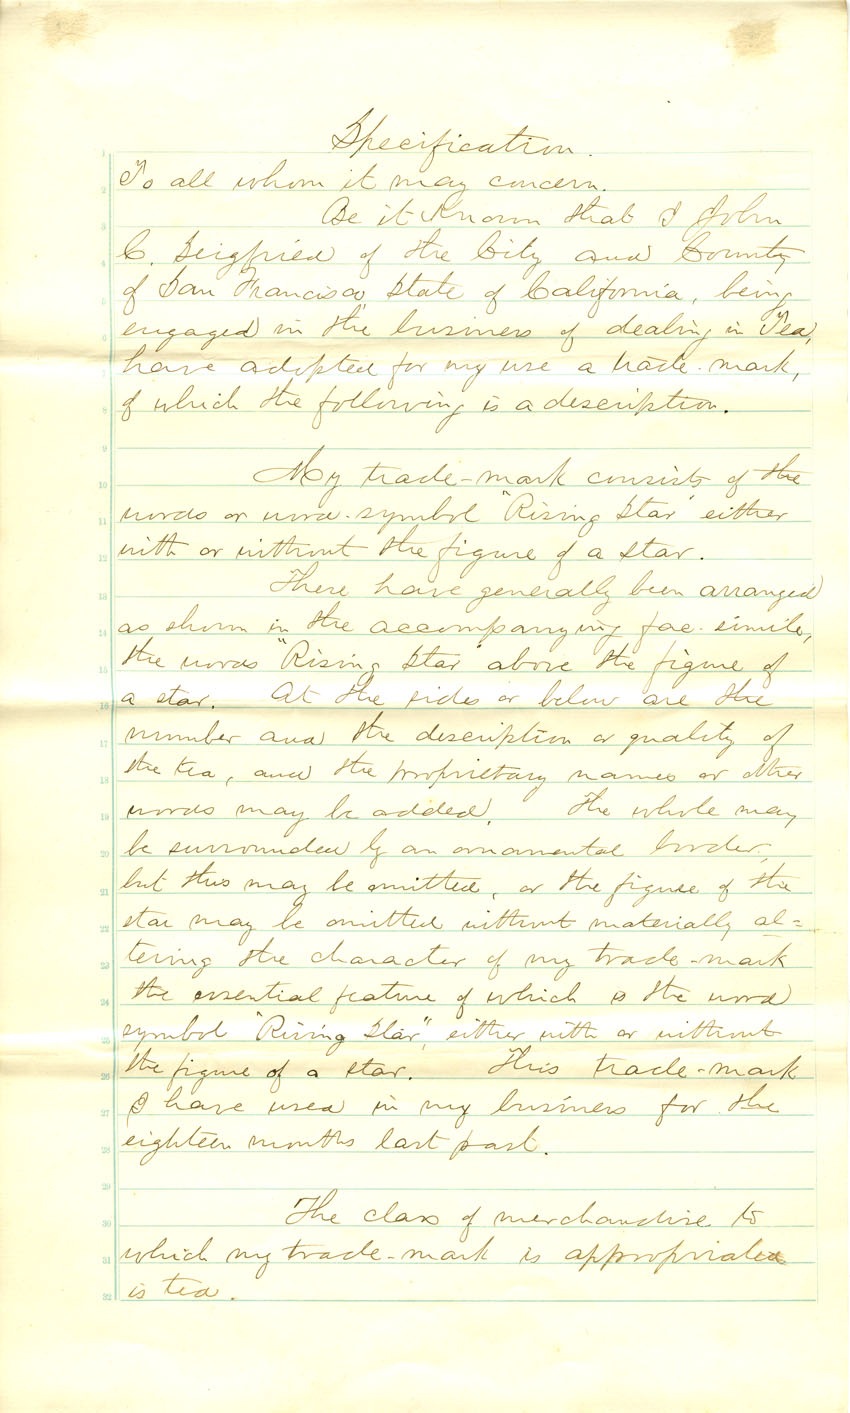 Specification.
To all whom it may concern.
Be it Known that I John
C. Seigfried of the City and County
of San Francisco, State of California, being
engaged in the business of dealing in Tea,
have adopted for my use a trade-mark,
of which the following is a description.
My trade-mark consists of the
words or word-symbol "Rising Star" either
with or without the figure of a star.
These have generally been arranged
as shown in the accompanying fac-simile,
the words "Rising Star" above the figure of
a star. At the sides or below are the
number and the description or quality of
the tea, and the proprietary names or other
words may be added. The whole may
be surrounded by an ornamental border,
but this may be omitted, or the figure of the
star may be omitted without materially al=
tering the character of my trade-mark
the essential feature of which is the word
symbol "Rising Star", either with or without
the figure of a star. This trade-mark
I have used in my business for the
eighteen months last past.
The class of merchandise to
which my trade-mark is appropriated
is tea.